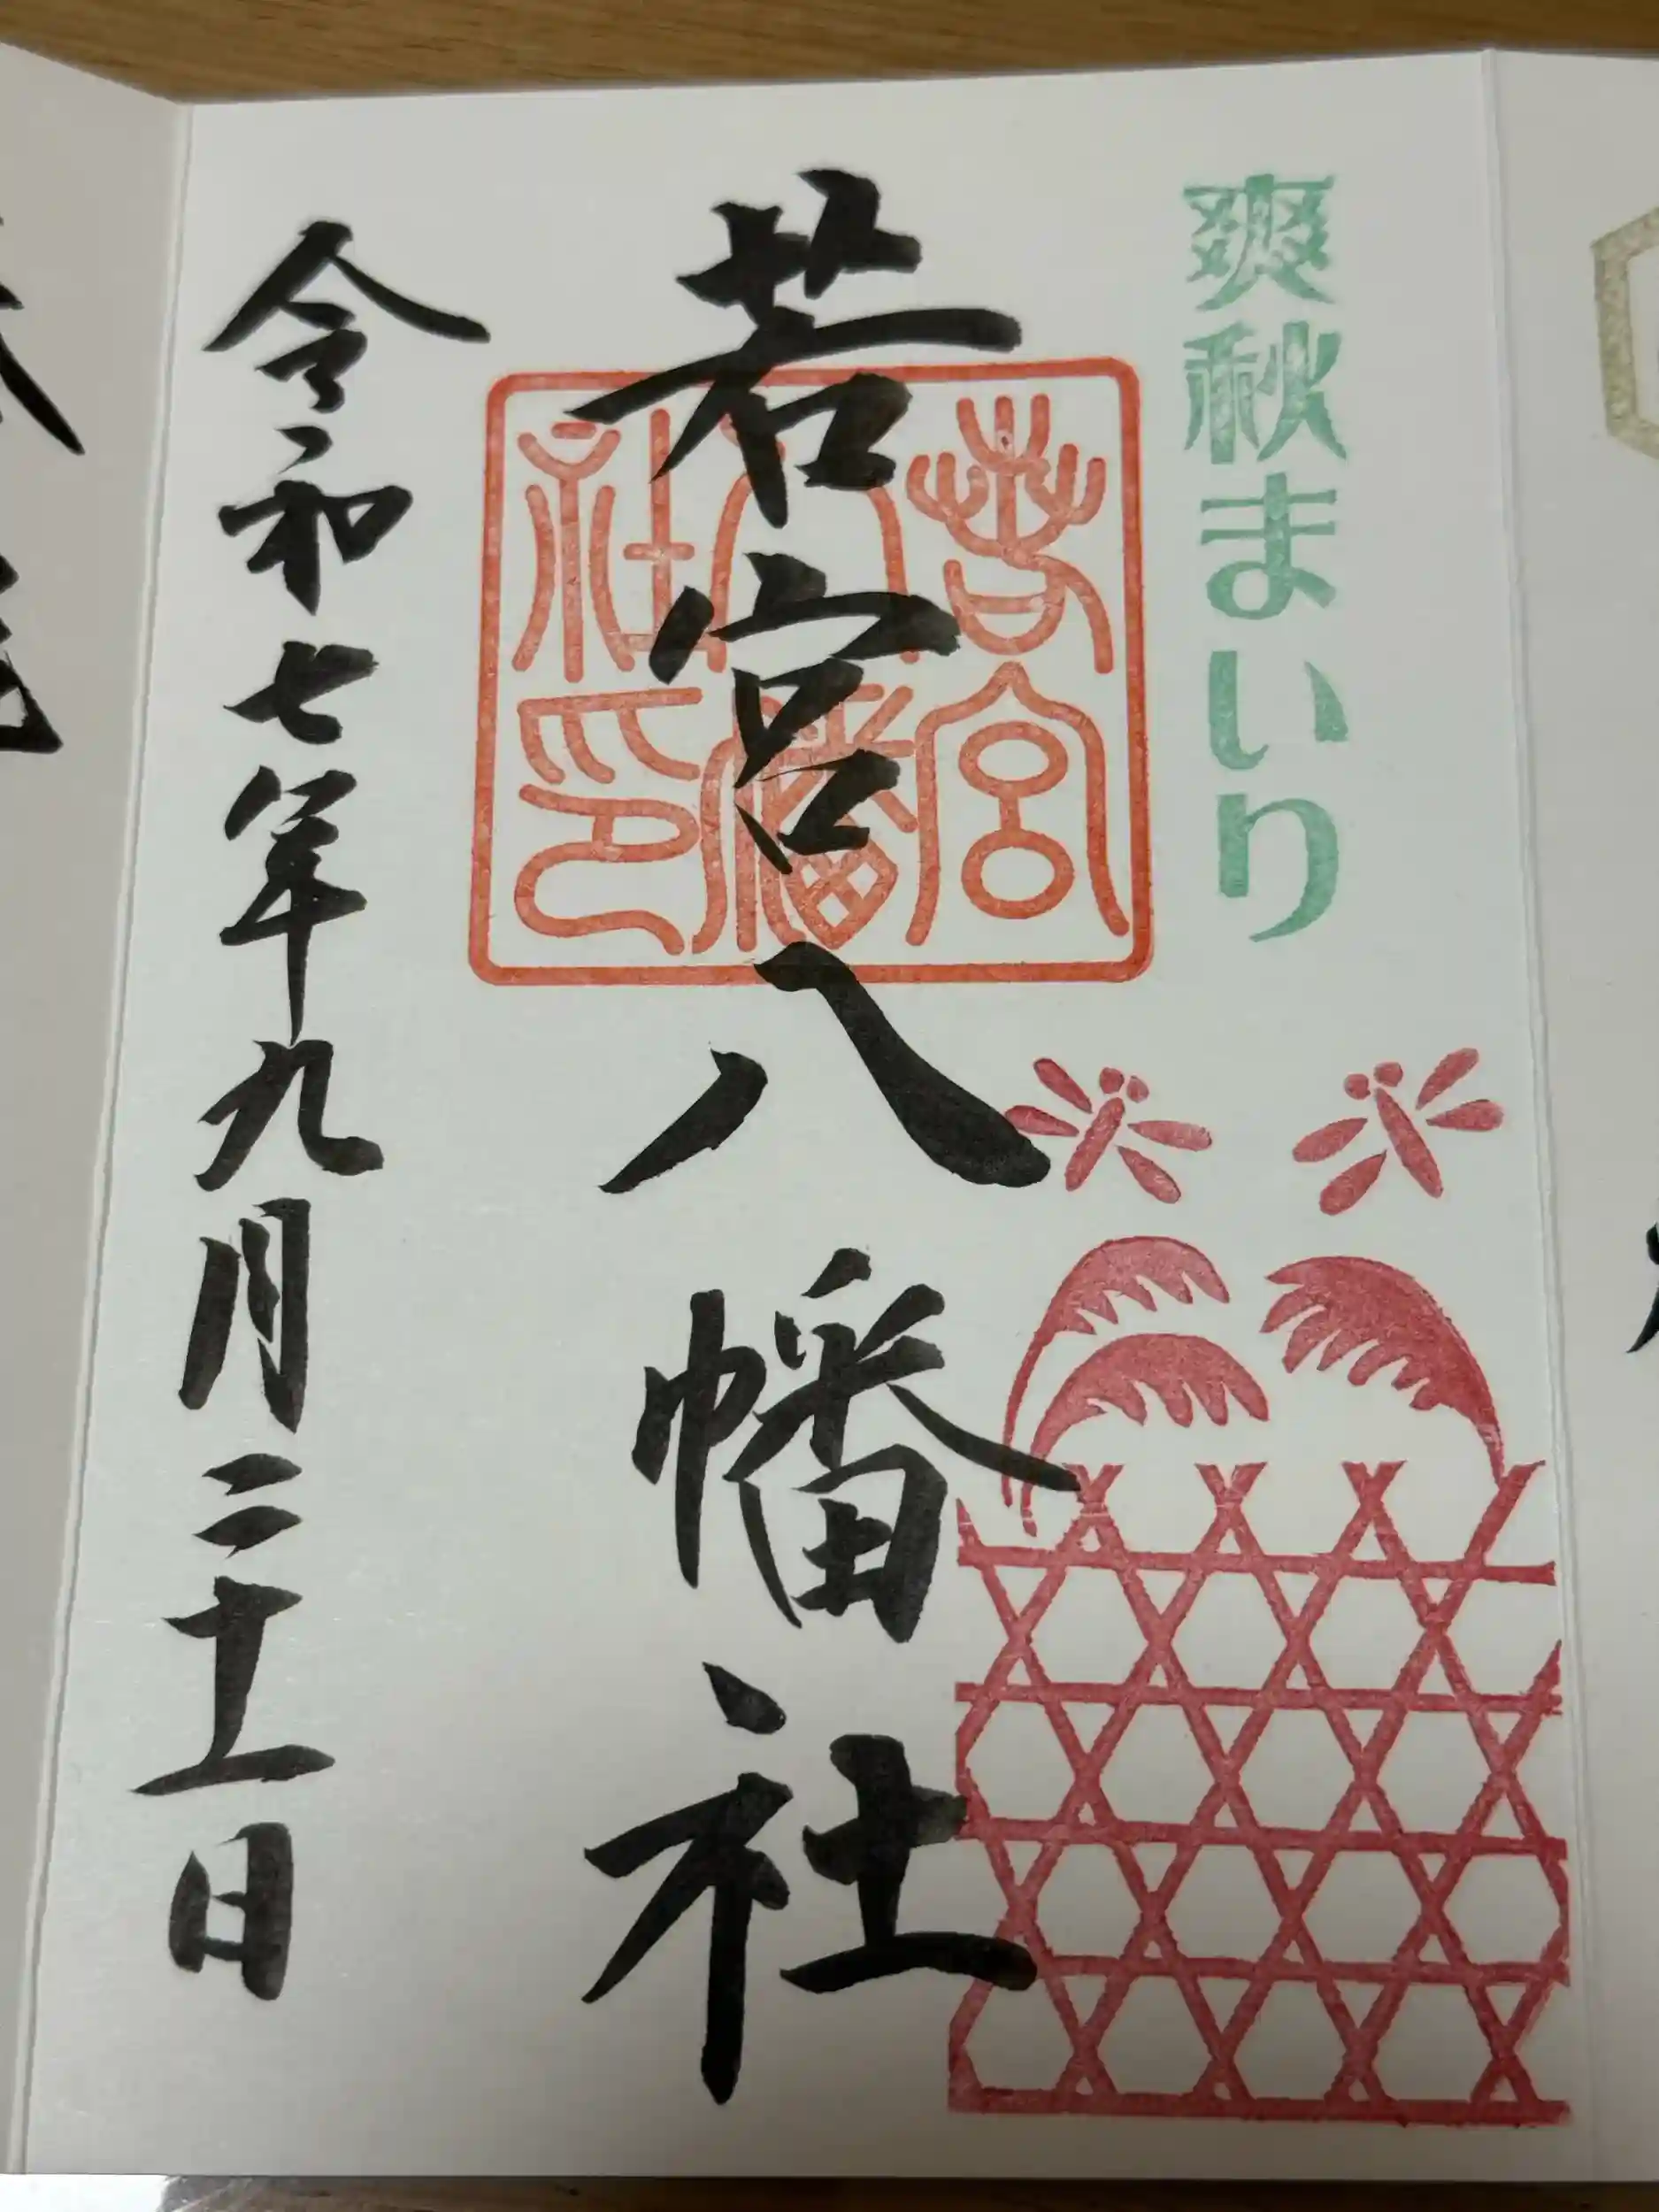 爽秋まいり
若宮八幡社
若宮
八幡
社印
令和七年九月二十一日